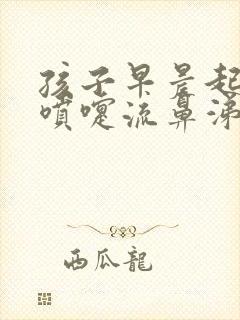 孩子早晨起
噴嚏流鼻涕
西瓜龍